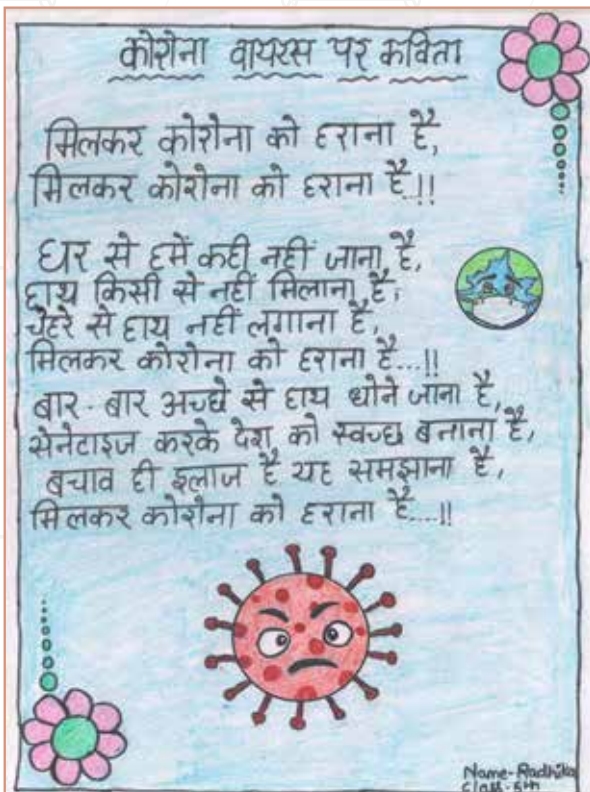 कोरोना वायरस पर कविता
मिलकर कोरोना को हराना है,
मिलकर कोरोना को हराना है..!!
घर से हमें कही नहीं जाना है,
हाथ किसी से नहीं मिलाना है,
चेहरे से हाथ नहीं लगाना है,
मिलकर कोरोना को हराना है...!!
बार-बार अच्छे से हाथ धोने जाना है,
सेनेटाइज करके देश को स्वच्छ बनाना है,
बचाव ही इलाज है यह समझाना है,
मिलकर कोरोना को हराना है....!!
Name-Radhika
Class-5th